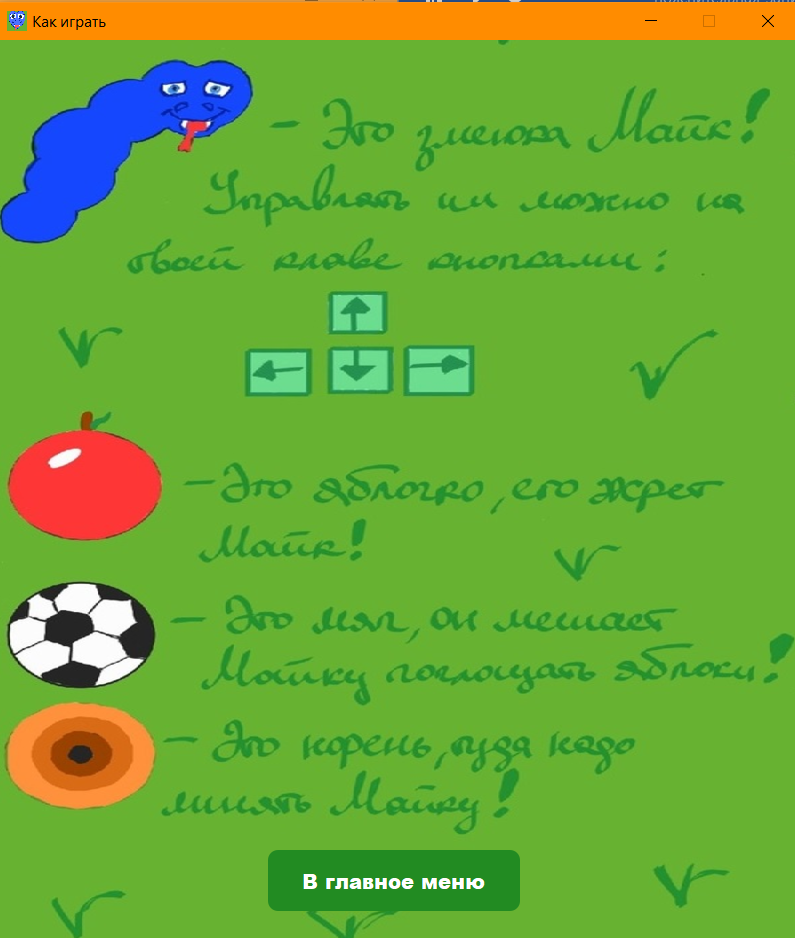 Как играть
- Это змеюка Майк!
Управлять им можно на
твоей клаве кнопками:
- Это яблочко, его жрет
Майк!
- Это мяч, он мешает
Майку поглощать яблоки!
- Это корень, туда надо
линять Майку!
В главное меню